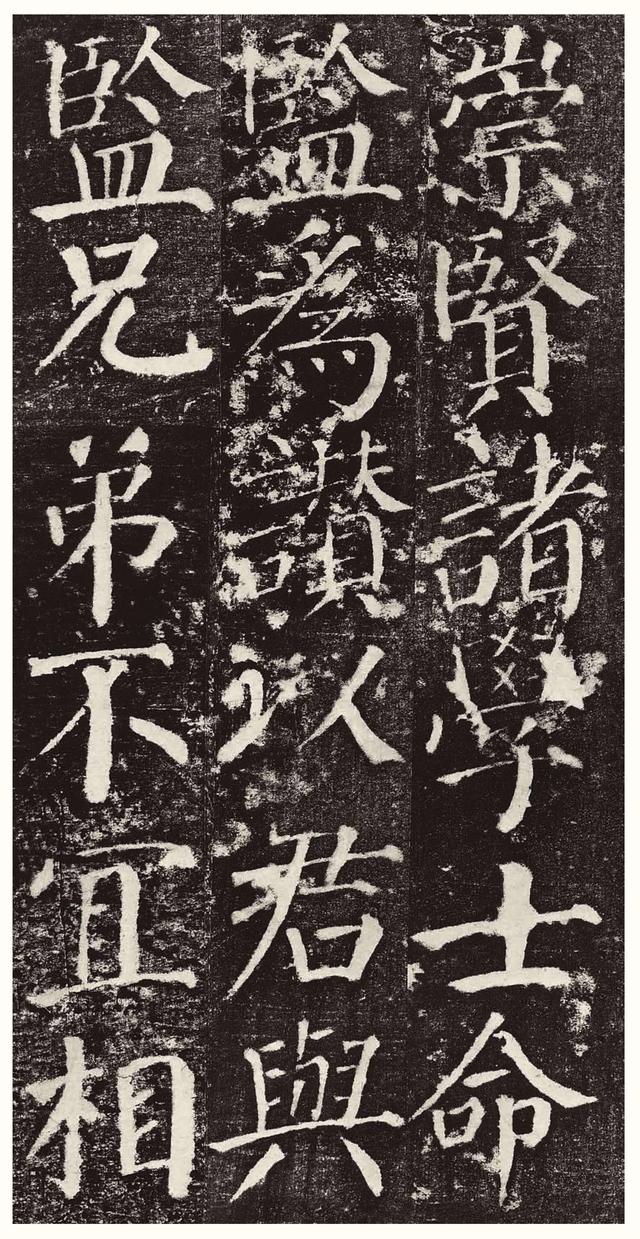 崇賢諸學士命
監為讃以君與
監兄弟不宜相